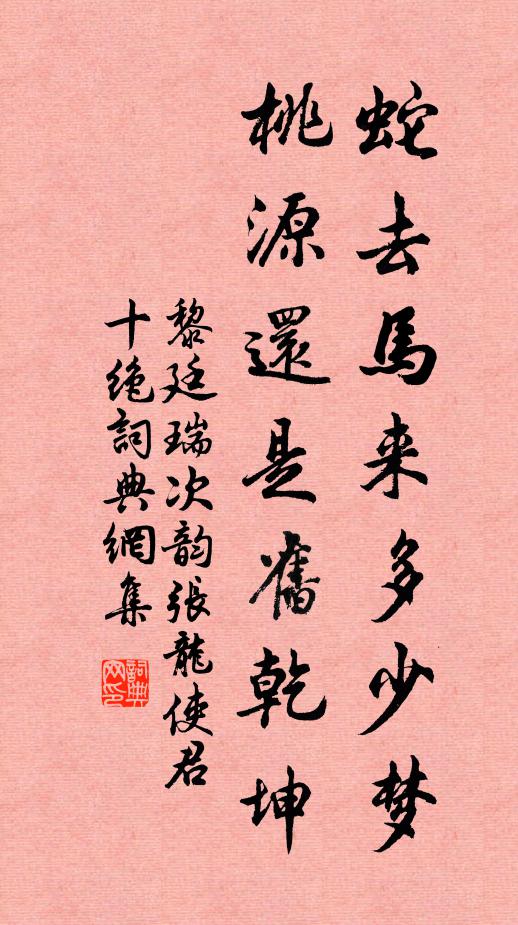 蛇去馬来多少梦
桃源還是舊乾坤
黎廷瑞次韵張龍使君
十绝詞典網集
詞典网印